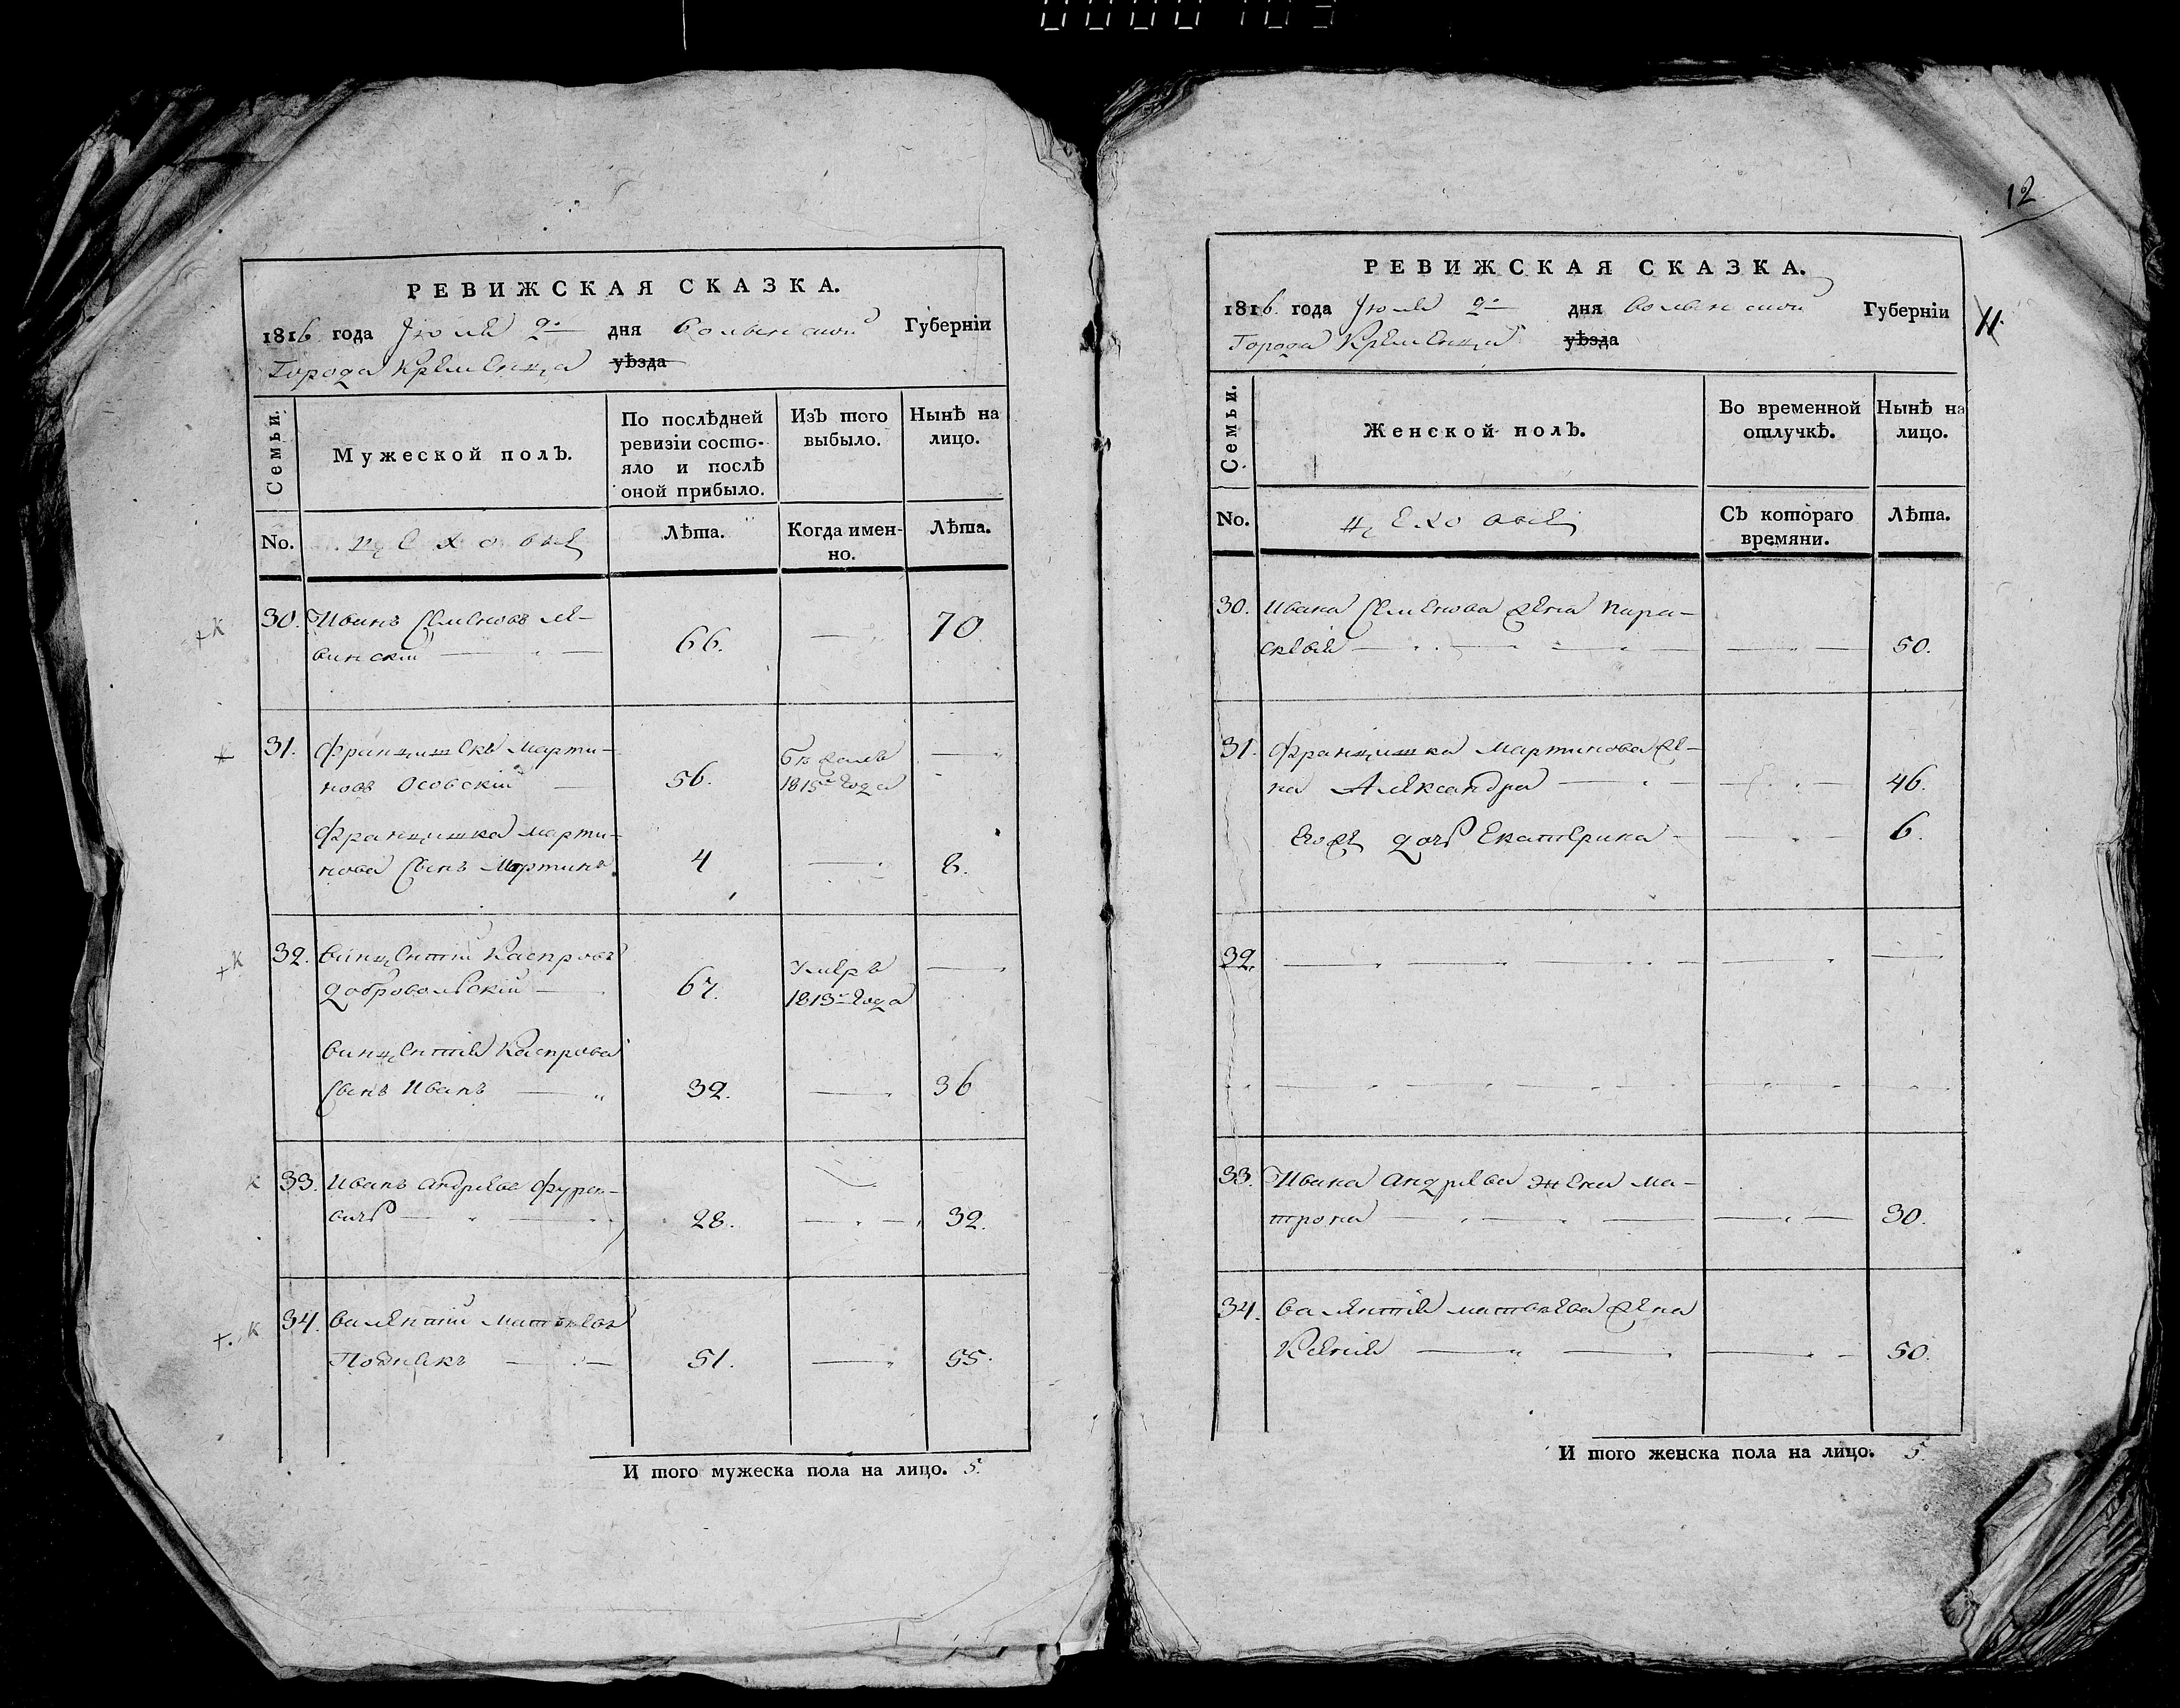 12
РЕВИЖСКАЯ СКАЗКА.
1816 года Іюля 2го дня Волынской Губерніи
Города Кременца уѣзда
Семьи.
Мужеской полЪ.
По послѣдней ревизіи состо-
яло и послѣ
оной прибыло.
ИзЪ того
выбыло.
НынѢ на
лицо.
No.
цеховые
Лѣта.
Когда имен-
но.
Лѣта.
30. Иванъ Семеновъ Ле-
винскій 66. 70
31. Францишекъ Марти-
новъ Осовскій 56. Бежалъ 1815го года
Францишка Марти-
нова сынъ Мартинъ 4 8.
32. Винцентій Каспровъ
Добровольскій 67. Умеръ 1813го года
Винцентія Каспрова
сынъ Иванъ 32. 36
33. Иванъ Андреевъ
28. 32.
34. Валентій Матвѣевъ
51. 55.
И того мужеска пола на лицо. 5.
РЕВИЖСКАЯ СКАЗКА.
1816 года Іюля 2го дня Волынской Губерніи
Города Кременца уѣзда
11.
Семьи.
Женской полЪ.
Во временной
отлучкѣ.
НынѢ на
лицо.
No.
цеховые
СЪ котораго
времяни.
Лѣта.
30. Ивана Семенова жена Пара-
скевія 50.
31. Францишка Мартинова же-
на Александра 46.
Егоже дочь Екатерина 6.
32.
33. Ивана Андреева жена Ма-
трона 30.
34. Валентія Матвѣева жена
50.
И того женска пола на лицо. 5.